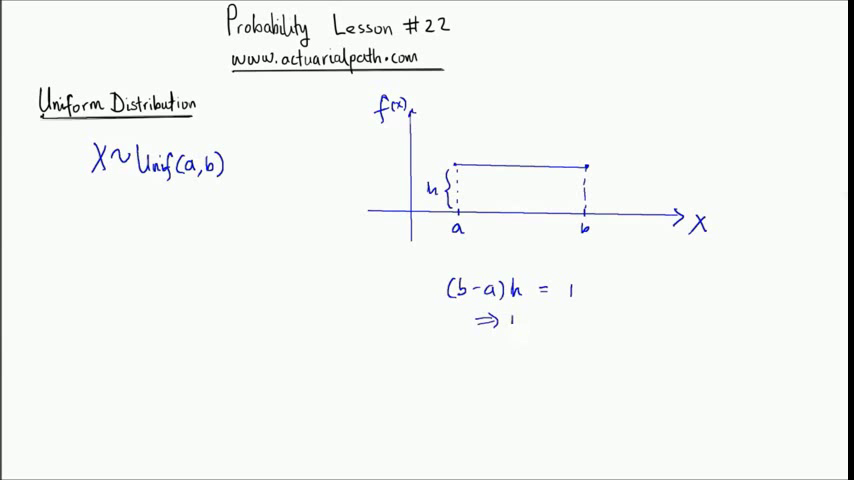 Probability Lesson #22
www.actuarialpath.com
Uniform Distribution
X~Unif(a,b)
f(x)
h
a
b
X
(b-a)h = 1
⇒